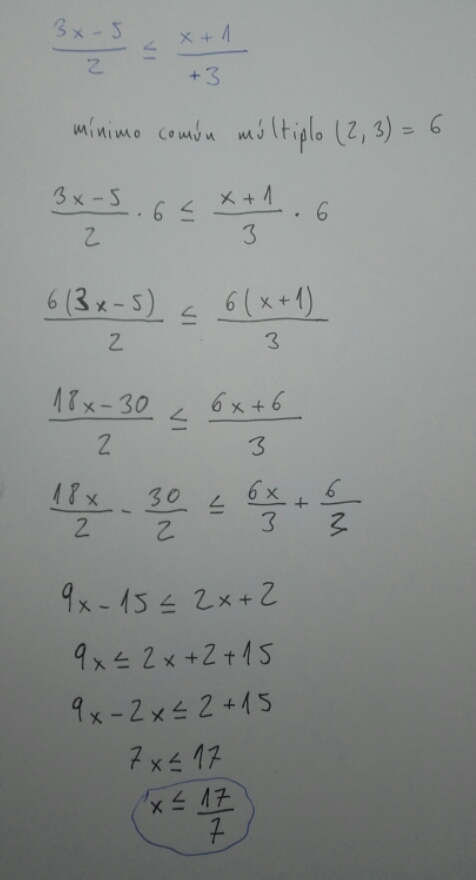 (3x-5)/2 ≤ (x+1)/+3
mínimo común múltiplo (2,3) = 6
(3x-5)/2 · 6 ≤ (x+1)/3 · 6
6(3x-5)/2 ≤ 6(x+1)/3
(18x-30)/2 ≤ (6x+6)/3
18x/2 - 30/2 ≤ 6x/3 + 6/3
9x-15 ≤ 2x+2
9x ≤ 2x+2+15
9x-2x ≤ 2+15
7x ≤ 17
x ≤ 17/7